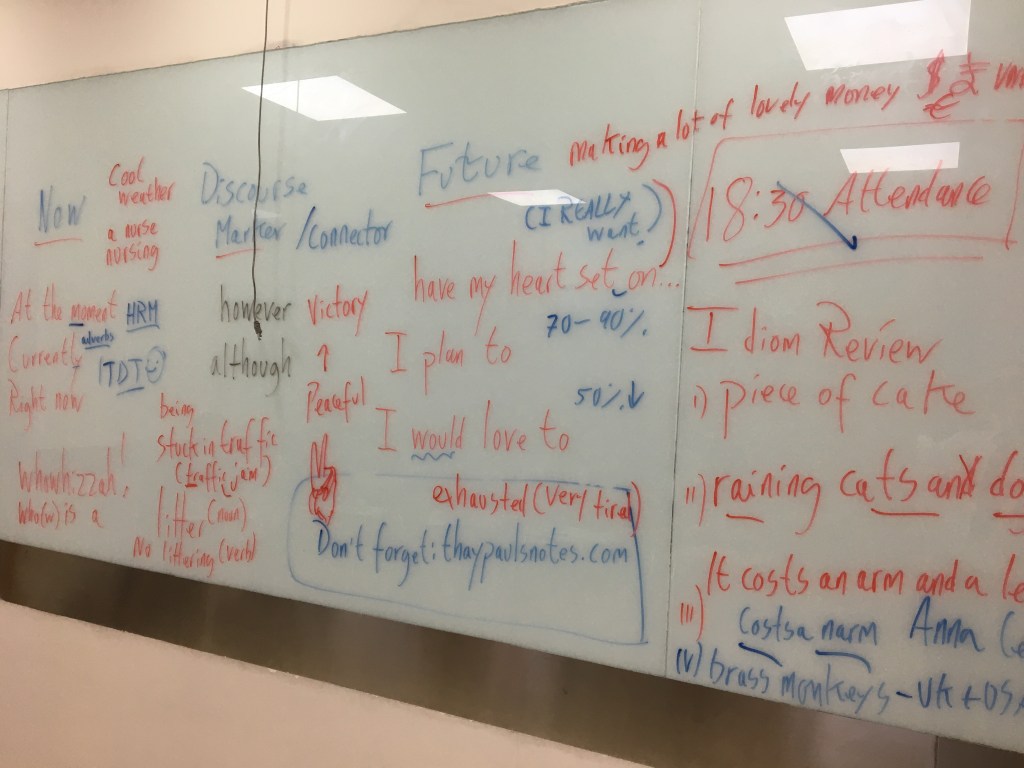 making a lot of lovely money $ £ €
18:30 Attendance
Now
Cool
weather
a nurse
nursing
At the moment HRM
adverbs
Currently
ITDI
Right now
Whuwhizzah!
Who(w) is a
being
stuck in traffic
(traffic jam)
litter (noun)
No littering (verb)
Discourse
Marker / Connector
however
although
Victory
↑
Peaceful
Future
(I REALLY
want.)
have my heart set on...
70-90%
I plan to
50%↓
I would love to
exhausted (very tired)
Don't forget: thaypaulsnotes.com
Idiom Review
i) piece of cake
ii) raining cats and do
iii) It costs an arm and a le
Costsa narm Anna
iv) brass monkeys - UK + USA